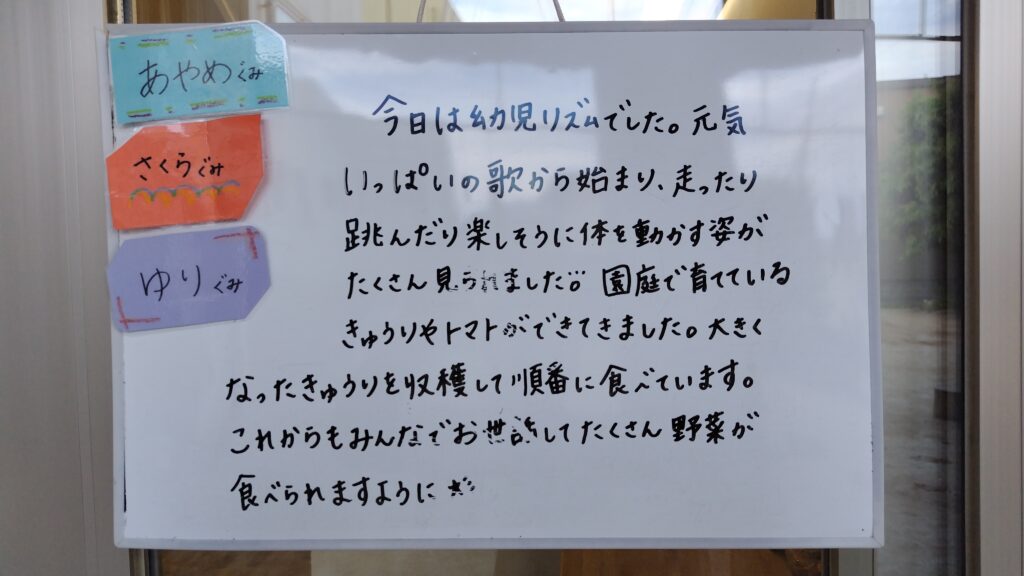 あやめぐみ
さくらぐみ
ゆりぐみ
今日は幼児リズムでした。元気
いっぱいの歌から始まり、走ったり
跳んだり楽しそうに体を動かす姿が
たくさん見られました。園庭で育てている
きゅうりやトマトができてきました。大きく
なったきゅうりを収穫して順番に食べています。
これからもみんなでお世話してたくさん野菜が
食べられますように